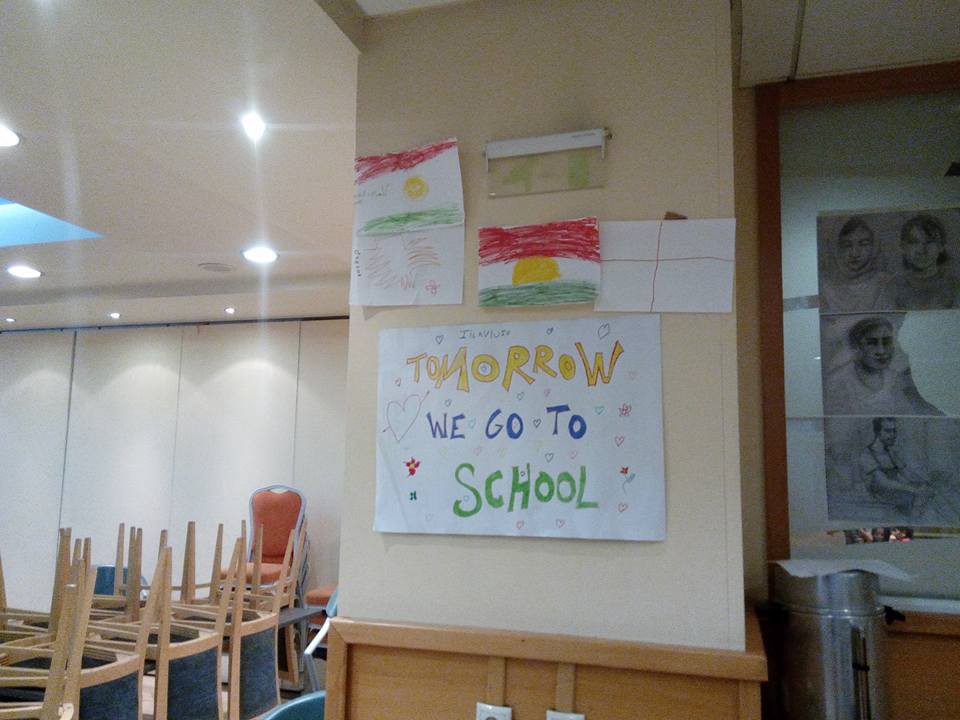 TOMORROW
WE GO TO
SCHOOL